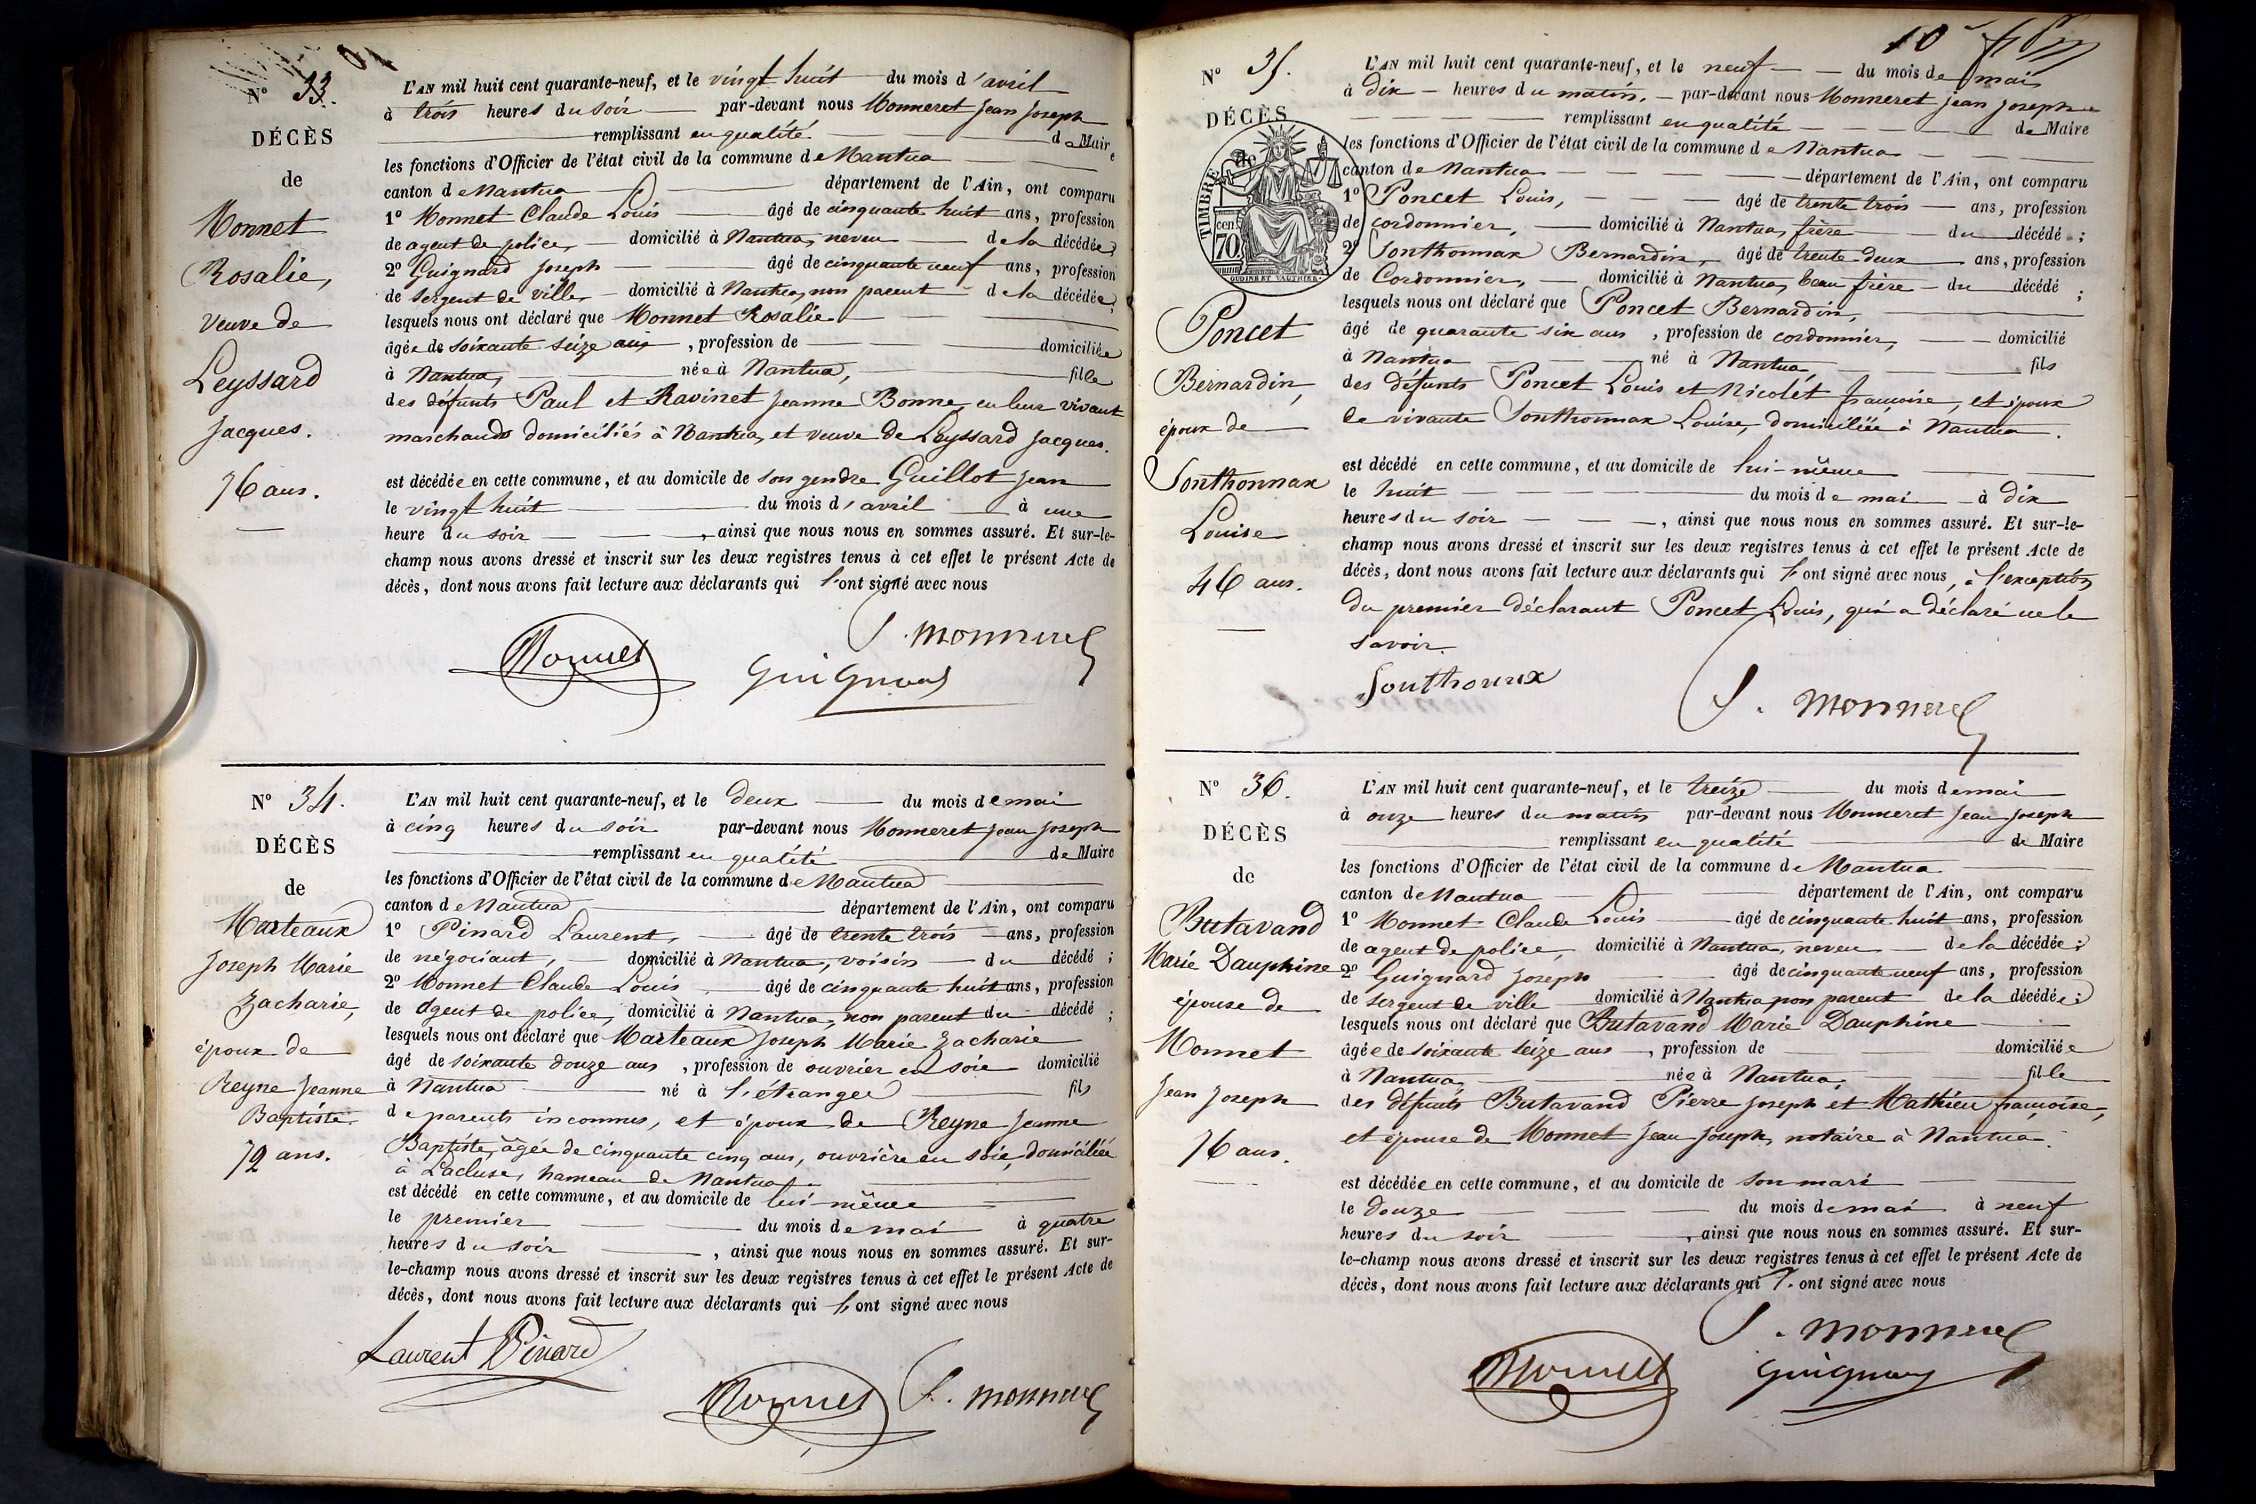 N° 33.
DÉCÈS
de
Monnet
Rosalie,
veuve de
Leyssard
Jacques.
76 ans.
L'AN mil huit cent quarante-neuf, et le vingt huit du mois d'avril
à trois heures du soir par-devant nous Monneret Jean Joseph
remplissant en qualité de Maire
les fonctions d'Officier de l'état civil de la commune de Nantua
canton de Nantua département de l'Ain, ont comparu
1° Monnet Claude Louis âgé de cinquante huit ans, profession
de agent de police, domicilié à Nantua, neveu de la décédée;
2° Guignard Joseph âgé de cinquante neuf ans, profession
de sergent de ville, domicilié à Nantua, non parent de la décédée;
lesquels nous ont déclaré que Monnet Rosalie
âgée de soixante seize ans, profession de domiciliée
à Nantua, née à Nantua, fille
des défunts Paul et Ravinet Jeanne Bonne, en leur vivant
marchands domiciliés à Nantua, et veuve de Leyssard Jacques.
est décédée en cette commune, et au domicile de son gendre Guillot Jean
le vingt huit du mois d'avril à une
heure du soir, ainsi que nous nous en sommes assuré. Et sur-le-
champ nous avons dressé et inscrit sur les deux registres tenus à cet effet le présent Acte de
décès, dont nous avons fait lecture aux déclarants qui l'ont signé avec nous
J. Monneret
Monnet
Guignard
N° 34.
DÉCÈS
de
Marteaux
Joseph Marie
Zacharie,
époux de
Reyne Jeanne
Baptiste.
72 ans.
L'AN mil huit cent quarante-neuf, et le deux du mois de mai
à cinq heures du soir par-devant nous Monneret Jean Joseph
remplissant en qualité de Maire
les fonctions d'Officier de l'état civil de la commune de Nantua
canton de Nantua département de l'Ain, ont comparu
1° Pinard Laurent, âgé de trente trois ans, profession
de négociant, domicilié à Nantua, voisin du décédé;
2° Monnet Claude Louis âgé de cinquante huit ans, profession
de agent de police, domicilié à Nantua, non parent du décédé;
lesquels nous ont déclaré que Marteaux Joseph Marie Zacharie
âgé de soixante douze ans, profession de ouvrier en soie domicilié
à Nantua né à l'étranger fils
de parents inconnus, et époux de Reyne Jeanne
Baptiste, âgée de cinquante cinq ans, ouvrière en soie, domiciliée
à Lacluse, hameau de Nantua.
est décédé en cette commune, et au domicile de lui-même
le premier du mois de mai à quatre
heures du soir, ainsi que nous nous en sommes assuré. Et sur-
le-champ nous avons dressé et inscrit sur les deux registres tenus à cet effet le présent Acte de
décès, dont nous avons fait lecture aux déclarants qui l'ont signé avec nous
Laurent Pinard
Monnet
J. Monneret
10
N° 35.
DÉCÈS
de
TIMBRE
70 cen
OUDINE ET VAUTHIER
Poncet
Bernardin,
époux de
Sonthonnax
Louise
46 ans.
L'AN mil huit cent quarante-neuf, et le neuf du mois de mai
à dix heures du matin, par-devant nous Monneret Jean Joseph
remplissant en qualité de Maire
les fonctions d'Officier de l'état civil de la commune de Nantua
canton de Nantua département de l'Ain, ont comparu
1° Poncet Louis, âgé de trente trois ans, profession
de cordonnier, domicilié à Nantua, frère du décédé;
2° Sonthonnax Bernardin, âgé de trente deux ans, profession
de Cordonnier, domicilié à Nantua, beau frère du décédé;
lesquels nous ont déclaré que Poncet Bernardin,
âgé de quarante six ans, profession de cordonnier, domicilié
à Nantua né à Nantua, fils
des défunts Poncet Louis et Nicolet françoise, et époux
de vivante Sonthonnax Louise, domiciliée à Nantua.
est décédé en cette commune, et au domicile de lui-même
le huit du mois de mai à dix
heures du soir, ainsi que nous nous en sommes assuré. Et sur-le-
champ nous avons dressé et inscrit sur les deux registres tenus à cet effet le présent Acte de
décès, dont nous avons fait lecture aux déclarants qui l'ont signé avec nous, à l'exception
du premier déclarant Poncet Louis, qui a déclaré ne le
savoir.
Sonthonnax
J. Monneret
N° 36.
DÉCÈS
de
Butavand
Marie Dauphine
épouse de
Monnet
Jean Joseph
76 ans.
L'AN mil huit cent quarante-neuf, et le treize du mois de mai
à onze heures du matin par-devant nous Monneret Jean Joseph
remplissant en qualité de Maire
les fonctions d'Officier de l'état civil de la commune de Nantua
canton de Nantua département de l'Ain, ont comparu
1° Monnet Claude Louis âgé de cinquante huit ans, profession
de agent de police, domicilié à Nantua, neveu de la décédée;
2° Guignard Joseph âgé de cinquante neuf ans, profession
de sergent de ville domicilié à Nantua non parent de la décédée;
lesquels nous ont déclaré que Butavand Marie Dauphine
âgée de soixante seize ans, profession de domiciliée
à Nantua, née à Nantua, fille
des défunts Butavand Pierre Joseph et Mathieu françoise,
et épouse de Monnet Jean Joseph, notaire à Nantua.
est décédée en cette commune, et au domicile de son mari
le douze du mois de mai à neuf
heures du soir, ainsi que nous nous en sommes assuré. Et sur-
le-champ nous avons dressé et inscrit sur les deux registres tenus à cet effet le présent Acte de
décès, dont nous avons fait lecture aux déclarants qui l'ont signé avec nous
J. Monneret
Monnet
Guignard